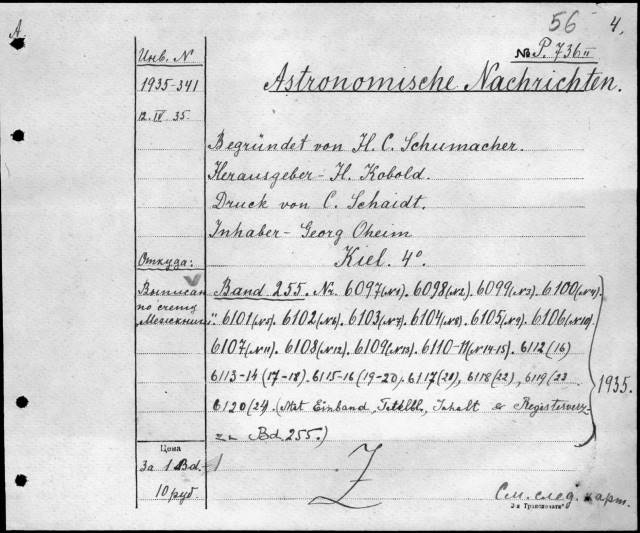 A.
56 4.
Инв. N
№ P. 736 II
1935-341
Astronomische Nachrichten.
12.IV.35.
Begründet von H. C. Schumacher.
Herausgeber - H. Kobold.
Druck von C. Schaidt.
Inhaber - Georg Oheim
Откуда:
Kiel. 4°.
Выписан по счету Межкниги
Band 255. Nr. 6097 (№1). 6098 (№2). 6099 (№3). 6100 (№4).
" 6101 (№5). 6102 (№6). 6103 (№7). 6104 (№8). 6105 (№9). 6106 (№10).
6107 (№11). 6108 (№12). 6109 (№13). 6110-11 (№14-15). 6112 (16)
6113-14 (17-18). 6115-16 (19-20). 6117 (21), 6118 (22), 6119 (23
6120 (24). (Mit Einband, Titelbl., Inhalt & Registerverz-
zu Bd 255.)
1935.
Цена
за 1 Bd. - 1
10 руб.
Z
См. след. карт.
2-я Транспечати